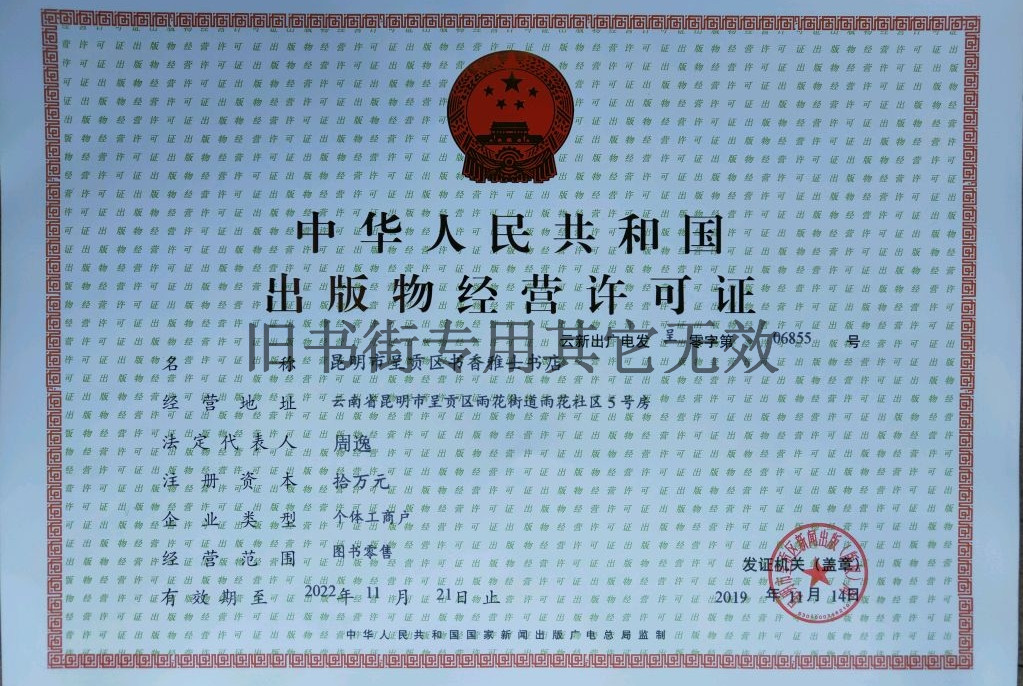 中华人民共和国
出版物经营许可证
云新出广电发 呈 零字第 06855 号
旧书街专用其它无效
名称 昆明市呈贡区书香雅士书店
经营地址 云南省昆明市呈贡区雨花街道雨花社区5号房
法定代表人 周逸
注册资本 拾万元
企业类型 个体工商户
经营范围 图书零售
有效期至 2022年 11 月 21日止
发证机关（盖章）
2019 年 11月 14日
中华人民共和国国家新闻出版广电总局监制